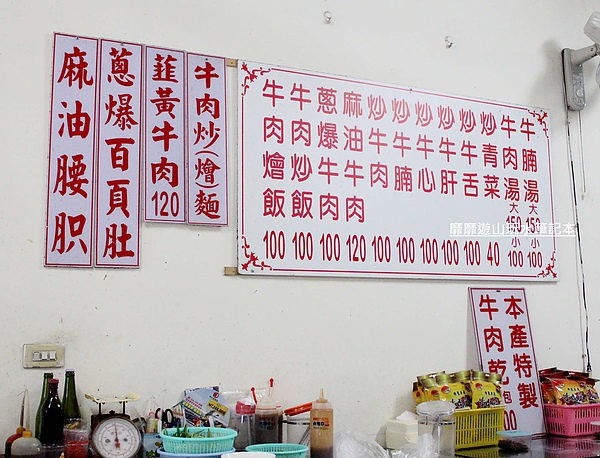 麻油腰
蔥爆百頁肚
韮黃牛肉120
牛肉炒(燴)麵
牛肉燴飯100
牛肉炒飯100
蔥爆牛肉100
麻油牛肉120
炒牛肉100
炒牛腩100
炒牛心100
炒牛肝100
炒牛舌100
炒青菜40
牛肉湯大150小100
牛腩湯大150小100
靡靡遊山玩水筆記本
本產特製
牛肉乾包00